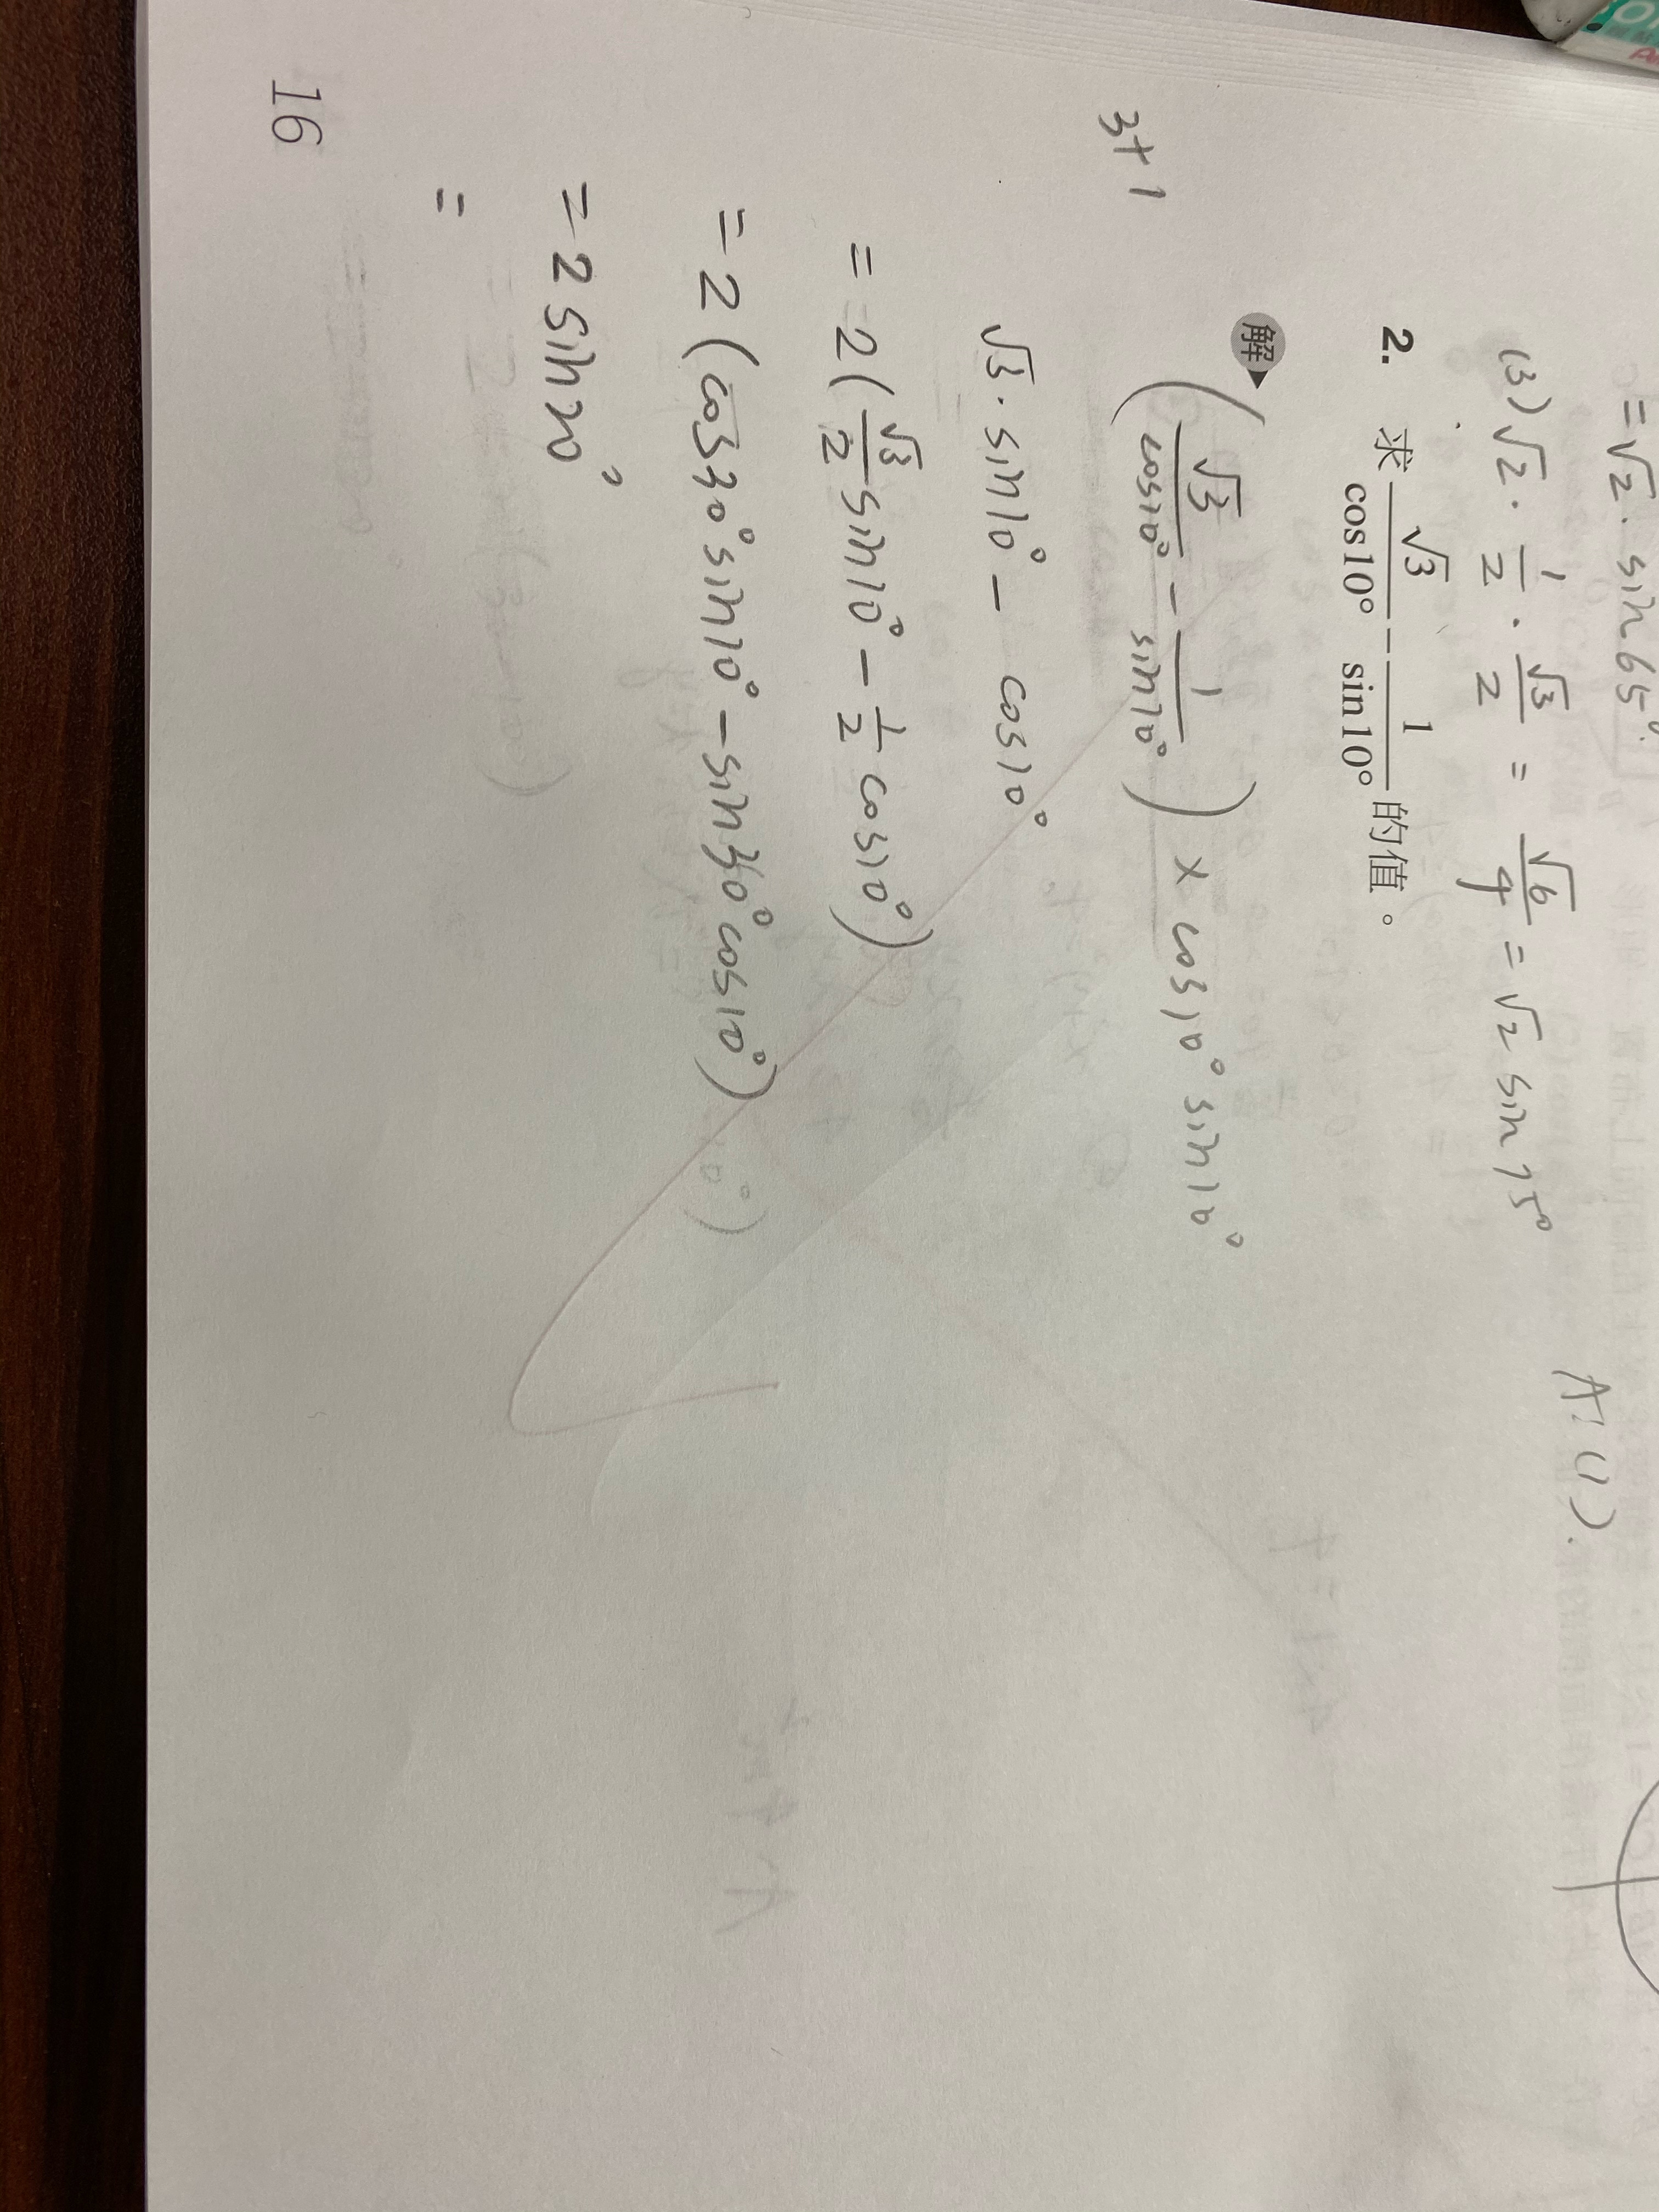 = √2 · sin65°
(3) √2 · 1/2 · √3/2 = √6/4 = √2 sin75°
A: (1).
2. 求 √3/cos10° - 1/sin10° 的值。
解
(√3/cos10° - 1/sin10°) × cos10° sin10°
3+1
√3 · sin10° - cos10°
= 2(√3/2 sin10° - 1/2 cos10°)
= 2(cos30° sin10° - sin30° cos10°)
= 2 sin20°
=
16